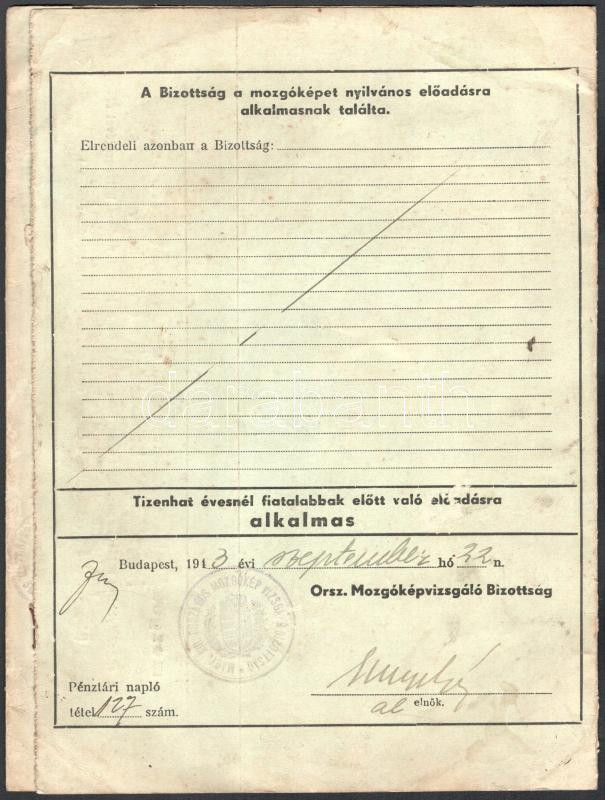 A Bizottság a mozgóképet nyilvános előadásra
alkalmasnak találta.
Elrendeli azonban a Bizottság:
darabanth
Tizenhat évesnél fiatalabbak előtt való előadásra
alkalmas
Budapest, 1943 évi szeptember hó 22 n.
Orsz. Mozgóképvizsgáló Bizottság
Pénztári napló
tétel 127 szám.
al elnök.